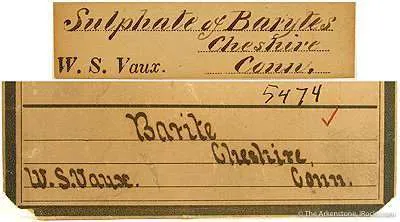 Sulphate of Barytes
Cheshire
W. S. Vaux. Conn.
5474
Barite
Cheshire,
W.S.Vaux. Conn.
© The Arkenstone, iRocks.com